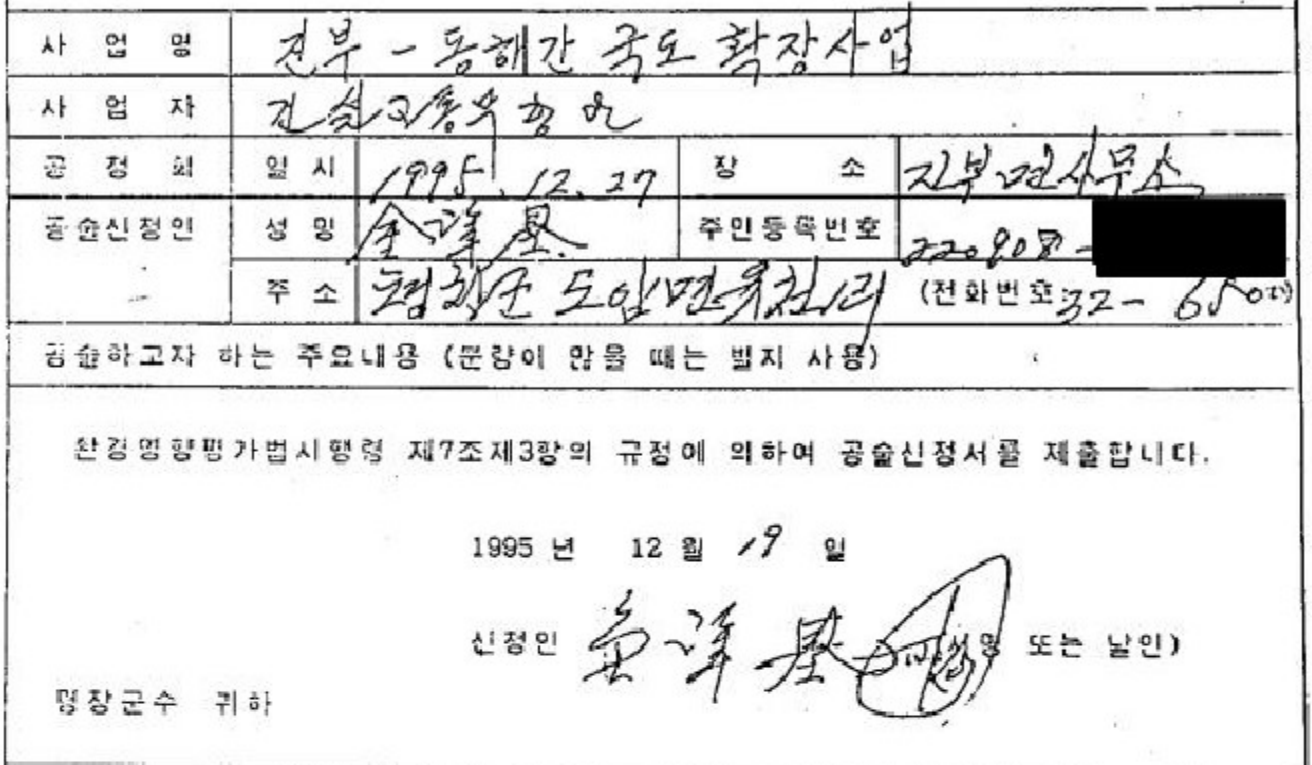 사 업 명 진부 - 동해간 국도 확장사업
사 업 자 건설교통부장관
공 청 회 일 시 1995. 12. 27 장 소 진부면사무소
공술신청인 성 명 金 基 주민등록번호 220908 -
주 소 평창군 도암면 리 (전화번호: 32 - 65
공술하고자 하는 주요내용 (분량이 많을 때는 별지 사용)
환경영향평가법시행령 제7조제3항의 규정에 의하여 공술신청서를 제출합니다.
1995 년 12 월 19 일
신청인 金 基 또는 날인)
평창군수 귀하